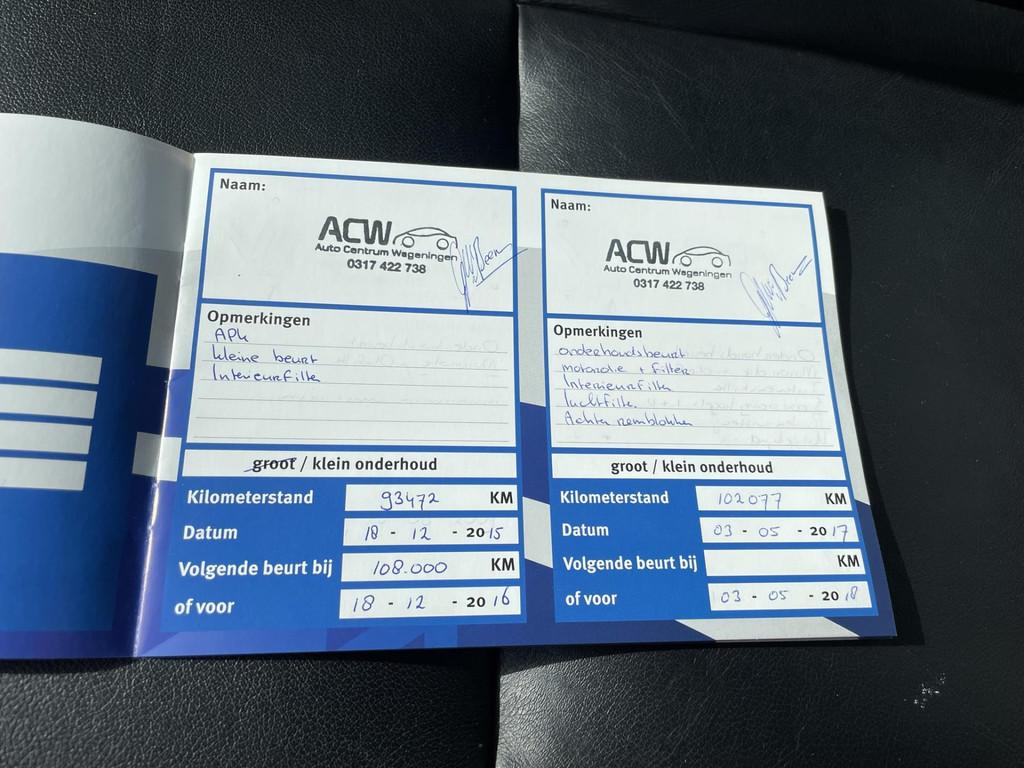 Naam:
ACW
Auto Centrum Wageningen
0317 422 738
Opmerkingen
APK
kleine beurt
Interieurfilter
groot / klein onderhoud
Kilometerstand 93472 KM
Datum 18 - 12 - 2015
Volgende beurt bij 108.000 KM
of voor 18 - 12 - 2016
Naam:
ACW
Auto Centrum Wageningen
0317 422 738
Opmerkingen
onderhoudsbeurt
motorolie + filter
Interieurfilter
luchtfilter
Achter remblokken
groot / klein onderhoud
Kilometerstand 102077 KM
Datum 03 - 05 - 2017
Volgende beurt bij KM
of voor 03 - 05 - 2018